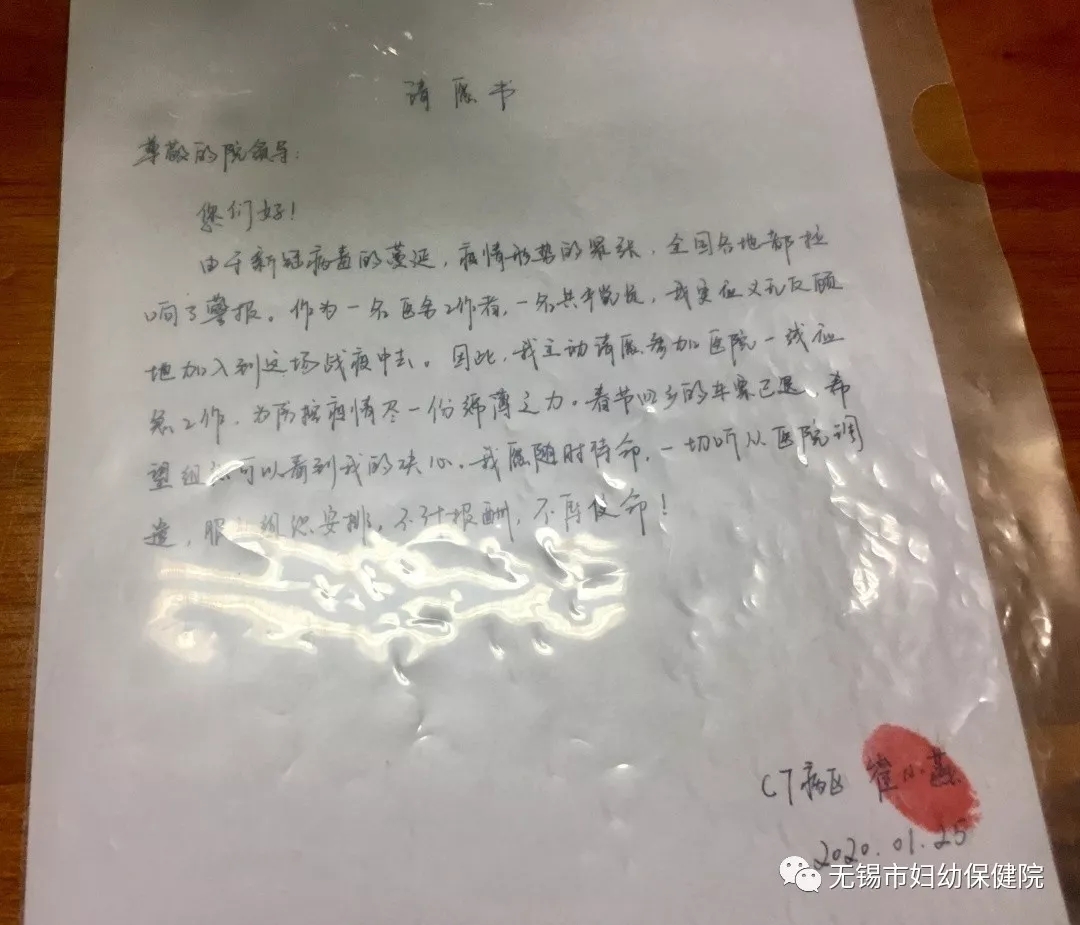 请愿书
尊敬的院领导：
您们好！
由于新冠病毒的蔓延，病情形势的紧张，全国各地都拉
响了警报。作为一名医务工作者，一名共产党员，我实应义无反顾
地加入到这场战疫中去。因此，我主动请愿参加医院一线应
急工作，为防控疫情尽一份绵薄之力。春节回乡的车票已退，希
望组织可以看到我的决心。我愿随时待命，一切听从医院调
遣，服从组织安排，不计报酬，不辱使命！
C7病区 崔小燕
2020.01.25
无锡市妇幼保健院